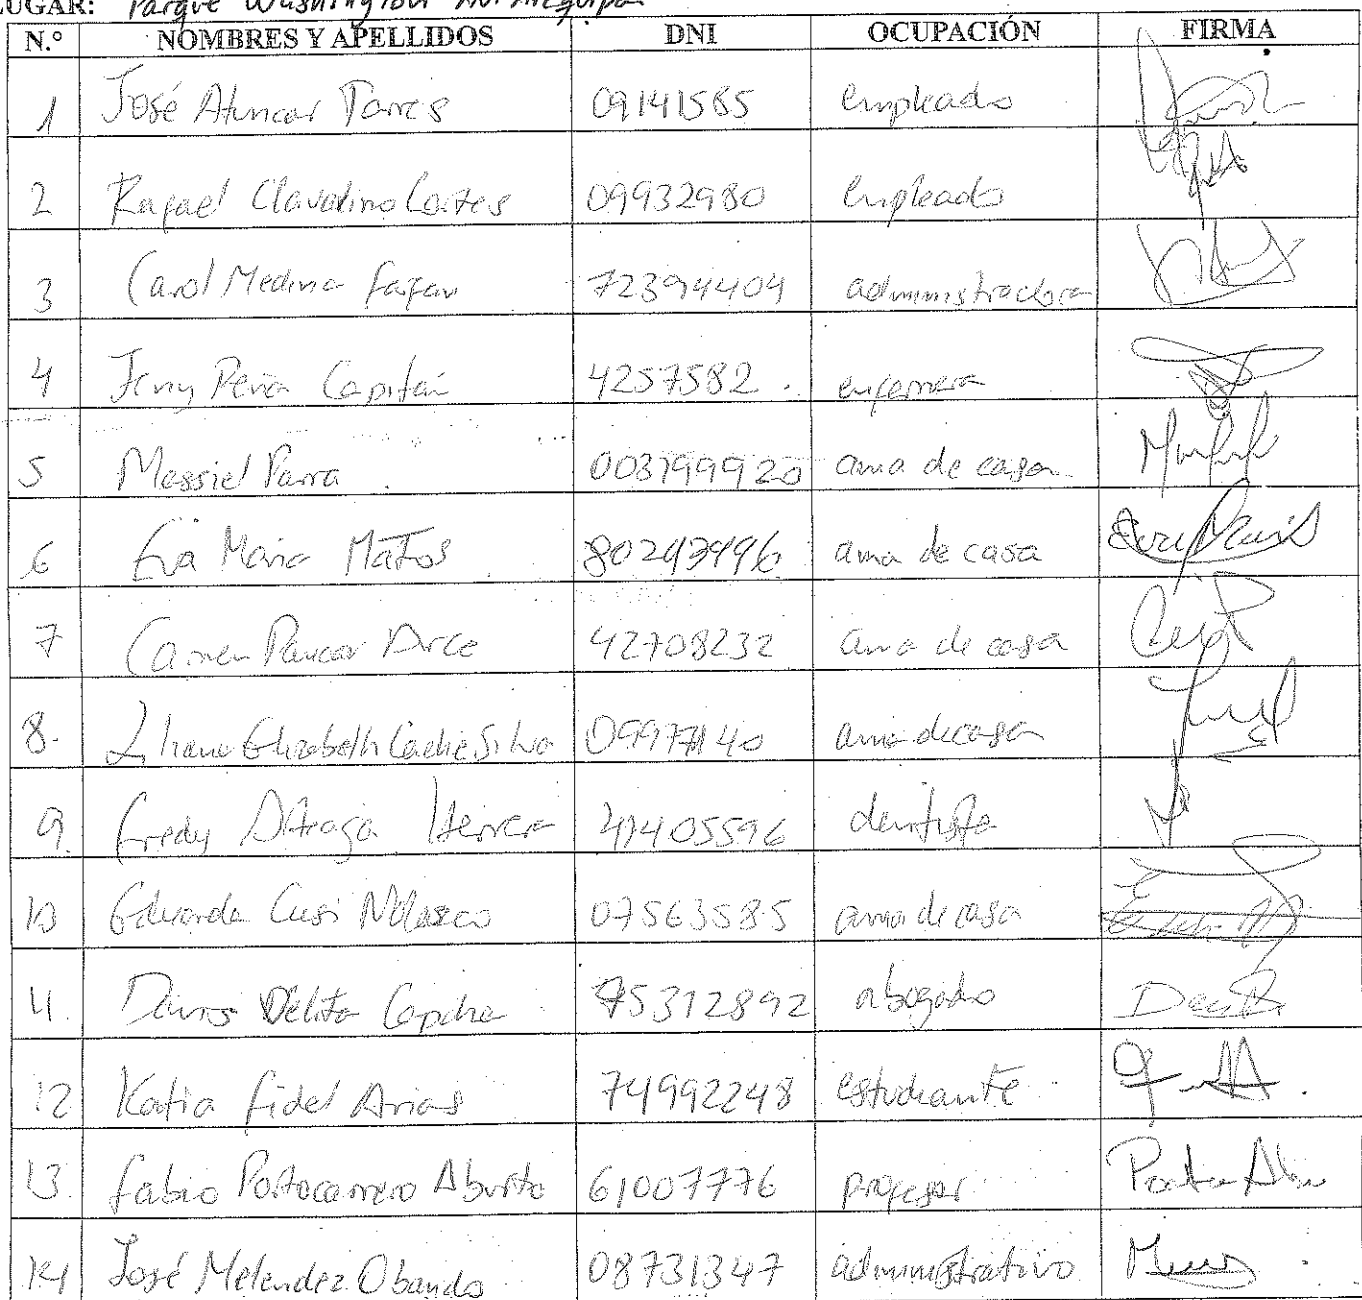 LUGAR: Parque Washington Av. Arequipa
N.° NOMBRES Y APELLIDOS DNI OCUPACIÓN FIRMA
1 José Atuncar Torres 09141585 empleado
2 Rafael Clavalino Cortes 09932980 empleado
3 Carol Medina 72394404 administradora
4 Jeny Peña Capitán 4257582. enfermera
5 Massiel Parra 003799920 ama de casa
6 Eva Maria Matos ama de casa
7 Carmen Paucar Arce 42708232 ama de casa
8. Elizabeth Silva ama de casa
9. Fredy Herrera 41405596 dentista
10 Eduarda Cusi Nolasco 07563585 ama de casa
11. 75312892 abogado
12 Katia Fidel Arias 74992248 estudiante
13. Fabio Portocarrero Aburto 61007776 profesor
14 José Melendez Obando 08731347 administrativo